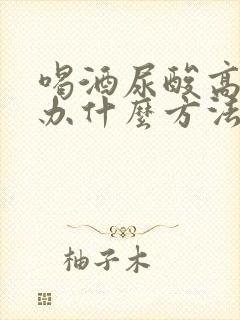 喝酒尿酸高
办什麼方法
柚子木